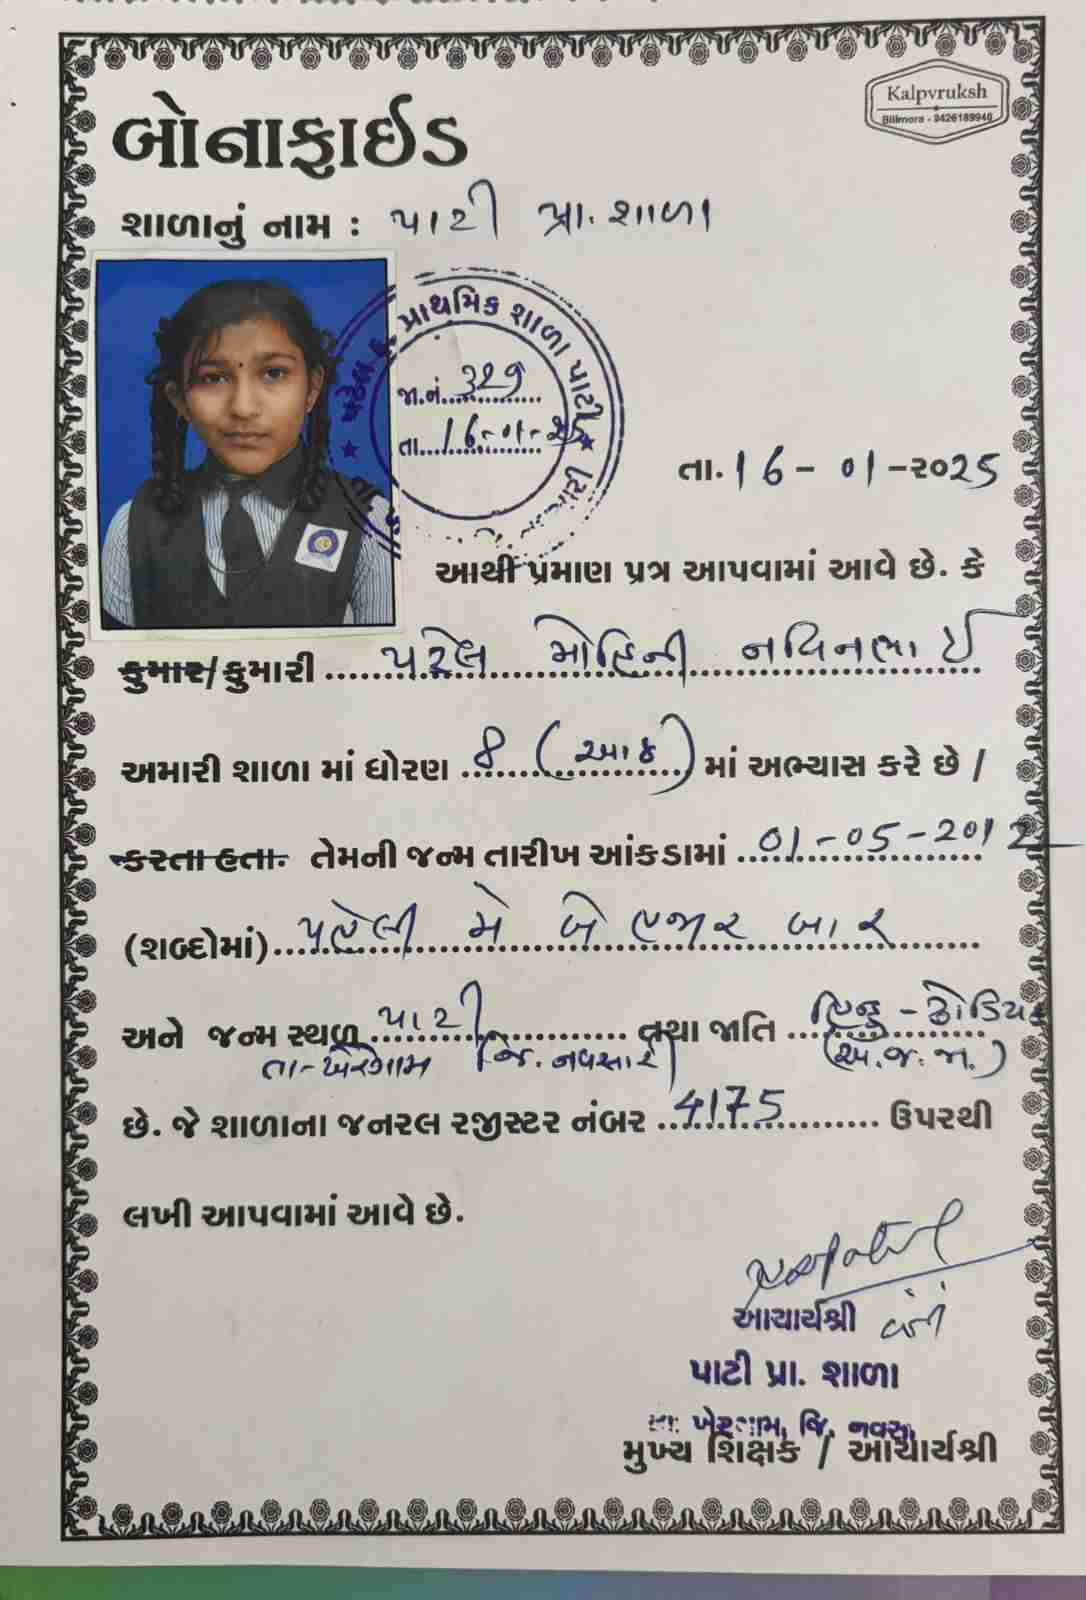 Kalpvruksh
Bilimora - 9426189940
બોનાફાઈડ
શાળાનું નામ : પાટી પ્રા. શાળા
પ્રાથમિક શાળા પાટી
જા.નં. 329
તા. 16-01-25
તા. 16 - 01 - ૨૦25
આથી પ્રમાણ પત્ર આપવામાં આવે છે. કે
કુમાર/કુમારી પટેલ મોહિની નવિનભાઈ
અમારી શાળા માં ધોરણ 8 (આઠ) માં અભ્યાસ કરે છે /
કરતા હતા. તેમની જન્મ તારીખ આંકડામાં 01-05-2012
(શબ્દોમાં) પહેલી મે બે હજાર બાર
અને જન્મ સ્થળ પાટી તથા જાતિ હિન્દુ - ઢોડિયા
તા-ખેરગામ જિ. નવસારી (અ.જ.જા.)
છે. જે શાળાના જનરલ રજીસ્ટર નંબર 4175 ઉપરથી
લખી આપવામાં આવે છે.
આચાર્યશ્રી
પાટી પ્રા. શાળા
તા. ખેરગામ, જિ. નવસા
મુખ્ય શિક્ષક / આચાર્યશ્રી